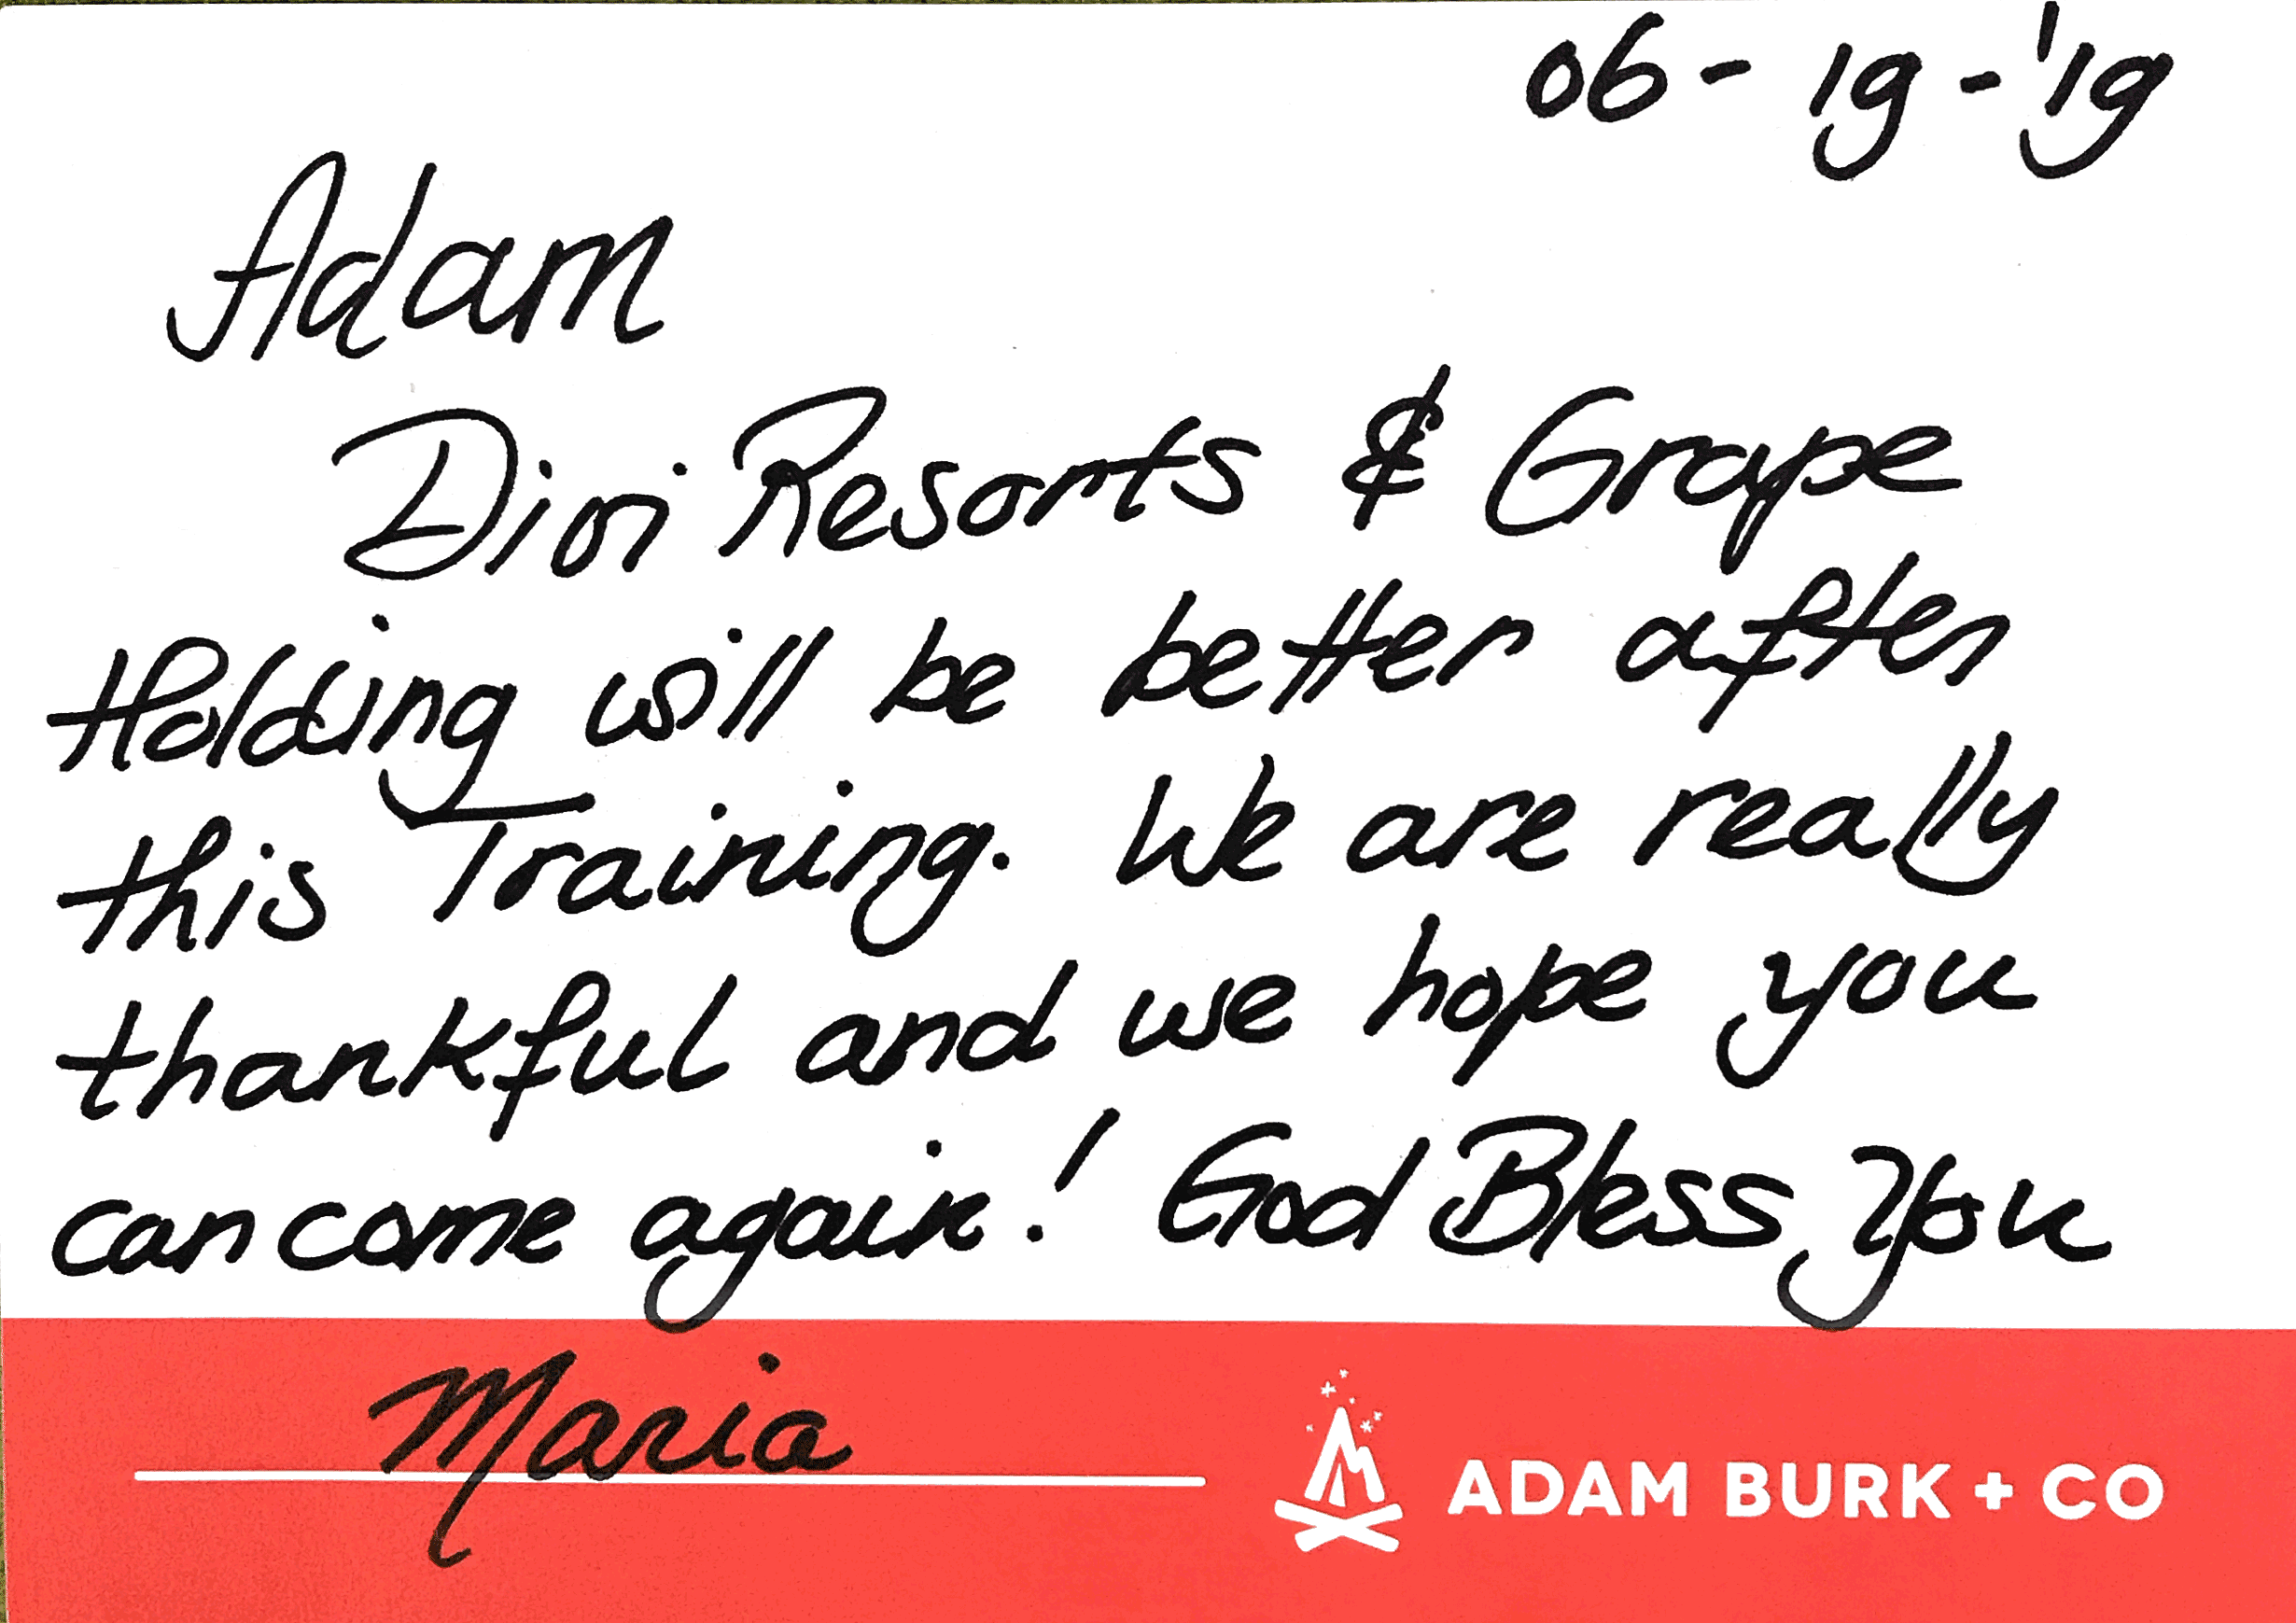 06-19-'19
Adam
Divi Resorts & Grape
Holding will be better after
this Training. We are really
thankful and we hope you
can come again! God Bless You
Maria
ADAM BURK + CO